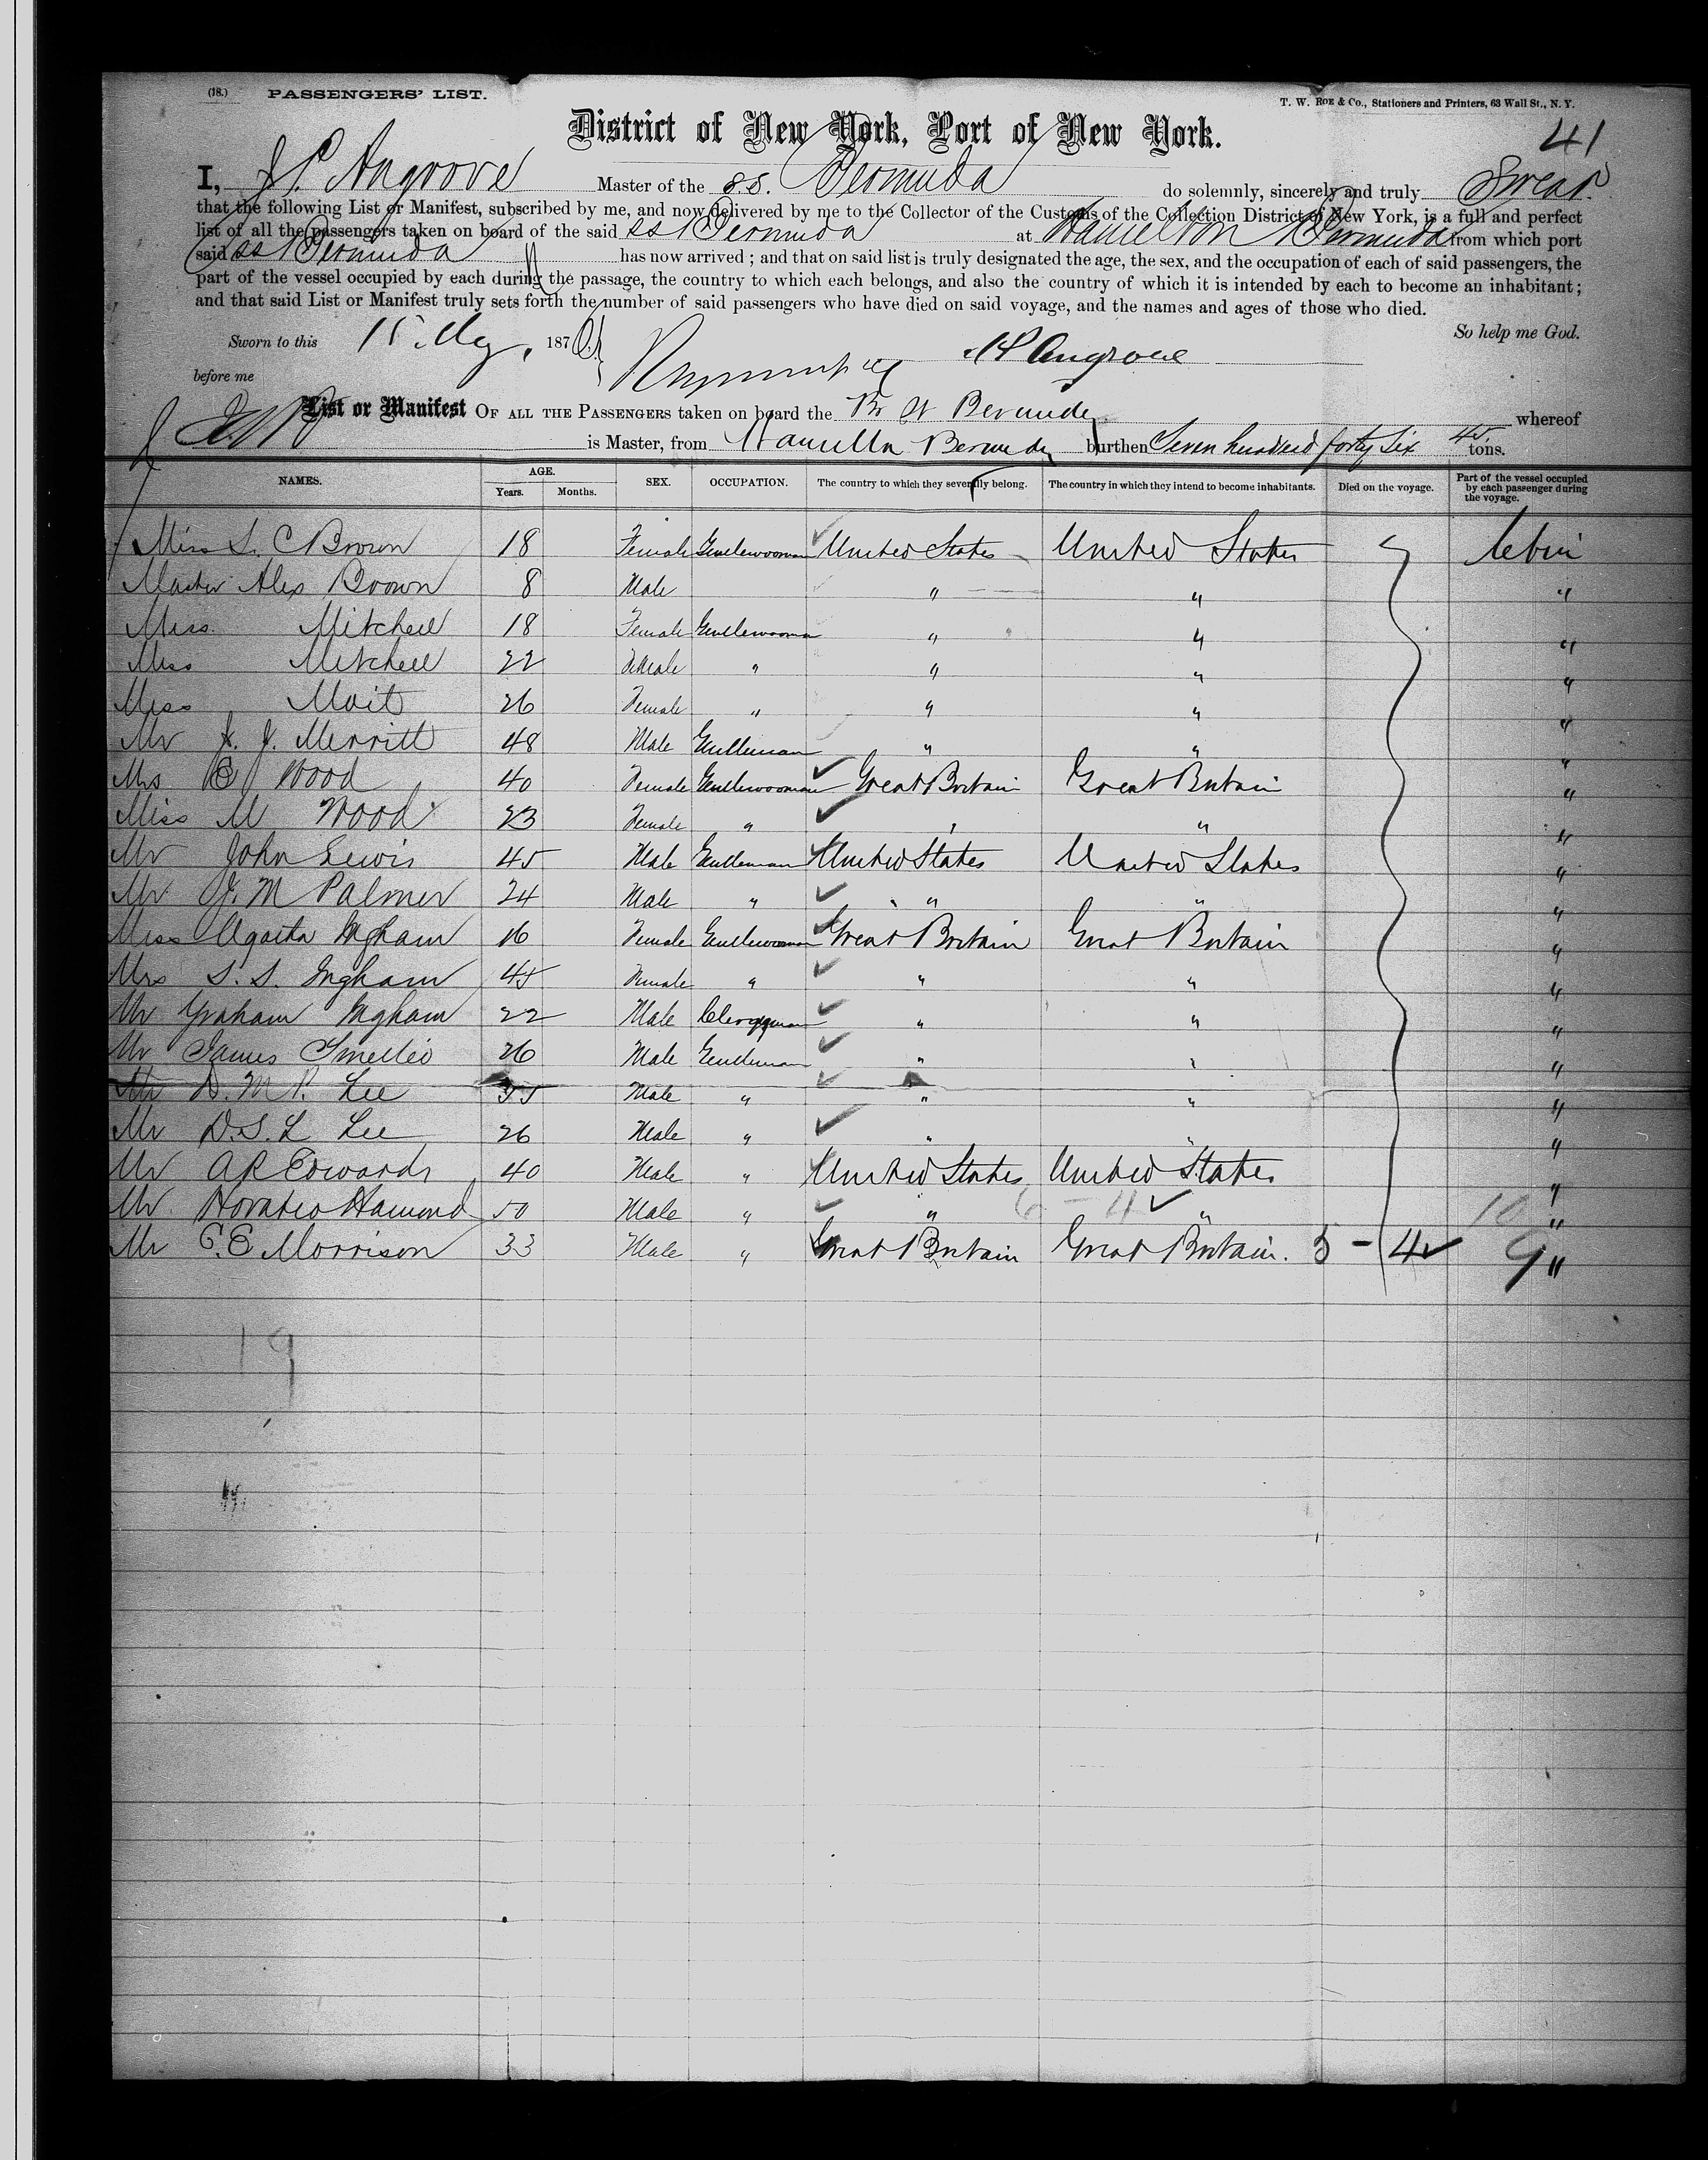 (18.) PASSENGERS' LIST. T. W. ROE & Co., Stationers and Printers, 63 Wall St., N. Y.
District of New York, Port of New York.
41
I, J P Angrove Master of the s.s. Bermuda do solemnly, sincerely and truly Swear
that the following List or Manifest, subscribed by me, and now delivered by me to the Collector of the Customs of the Collection District of New York, is a full and perfect
list of all the passengers taken on board of the said ss Bermuda at Hamilton Bermuda from which port
said ss Bermuda has now arrived ; and that on said list is truly designated the age, the sex, and the occupation of each of said passengers, the
part of the vessel occupied by each during the passage, the country to which each belongs, and also the country of which it is intended by each to become an inhabitant ;
and that said List or Manifest truly sets forth the number of said passengers who have died on said voyage, and the names and ages of those who died.
Sworn to this 15 187 So help me God.
before me Angrove
List or Manifest OF ALL THE PASSENGERS taken on board the Br St Bermuda whereof
is Master, from Bermuda burthen Seven hundred forty Six 45 tons.
NAMES. AGE. SEX. OCCUPATION. The country to which they severally belong. The country in which they intend to become inhabitants. Died on the voyage. Part of the vessel occupied by each passenger during the voyage.
Years. Months.
Miss L. C Brown 18 Female Gentlewoman United States United States
Master Alex Brown 8 Male " " "
Miss Mitchell 18 Female Gentlewoman " " "
Miss Mitchell 22 Female " " " "
Miss 26 Female " " " "
Mr J. Merritt 48 Male Gentleman " " "
Mrs E Wood 40 Female Gentlewoman Great Britain Great Britain "
Miss M Wood 23 Female " " " "
Mr John Lewis 45 Male Gentleman United States United States "
Mr J. M Palmer 24 Male " " " "
Miss Agatha Ingham 16 Female Gentlewoman Great Britain Great Britain "
Mrs S. S. Ingham 45 Female " " " "
Mr Graham Ingham 22 Male Clergyman " " "
Mr James Smellie 26 Male Gentleman " " "
Mr D. M P. Lee 35 Male " " " "
Mr D. S. L Lee 26 Male " " " "
Mr A R Edwards 40 Male " United States United States "
Mr Horatio Hamond 50 Male " " 6 - 4 " 10 "
Mr C. E Morrison 33 Male " Great Britain Great Britain. 5 - 4 9 "
19